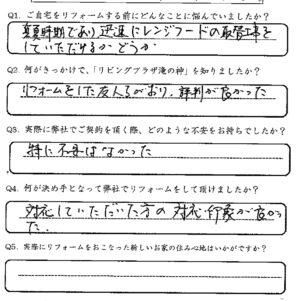 Q1. ご自宅をリフォームする前にどんなことに悩んでいましたか?
真夏時期であり迅速にレンジフードの取替工事を
していただけるかどうか
Q2. 何がきっかけで、「リビングプラザ滝の神」を知りましたか?
リフォームをした友人らがおり、評判が良かった
Q3. 実際に弊社でご契約を頂く際、どのような不安をお持ちでしたか?
特に不安はなかった
Q4. 何が決め手となって弊社でリフォームをして頂けましたか?
対応していただいた方の対応・印象が良かっ
た
Q5. 実際にリフォームをおこなった新しいお家の住み心地はいかがですか?